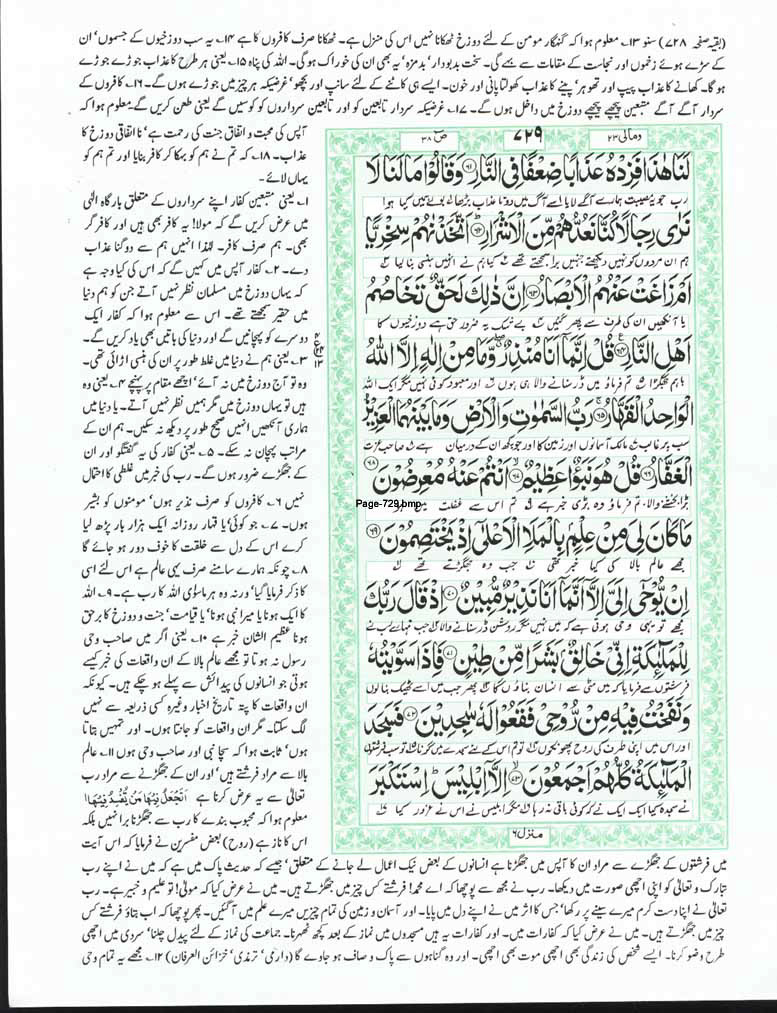 (بقیہ صفحہ ۷۲۸) سنو ۱۳۔ معلوم ہوا کہ گنہگار مومن کے لئے دوزخ ٹھکانا نہیں اس کی منزل ہے۔ ٹھکانا صرف کافروں کا ہے ۱۴۔ یہ سب دوزخیوں کے جسموں' ان
کے سڑے ہوئے زخموں اور نجاست کے مقامات سے بہے گی۔ سخت بدبودار' بدمزہ' یہ بھی ان کی خوراک ہوگی۔ اللہ کی پناہ ۱۵۔ یعنی ہر طرح کا عذاب جوڑے جوڑے
ہو گا۔ کھانے کا عذاب پیپ اور تھوہر' پینے کا عذاب کھولتا پانی اور خون۔ ایسے ہی کاٹنے کے لئے سانپ اور بچھو' غرضیکہ ہر چیز میں جوڑے ہوں گے۔ ۱۶۔ کافروں کے
سردار آگے آگے متبعین پیچھے پیچھے دوزخ میں داخل ہوں گے۔ ۱۷۔ غرضیکہ سردار تابعین کو اور تابعین سرداروں کو کوسیں گے یعنی طعن کریں گے معلوم ہوا کہ
آپس کی محبت و اتفاق جنت کی رحمت ہے' نااتفاقی دوزخ کا
عذاب۔ ۱۸۔ کہ تم نے ہم کو بہکا کر کافر بنایا اور تم ہم کو
یہاں لائے۔
۱۔ یعنی متبعین کفار اپنے سرداروں کے متعلق بارگاہ الٰہی
میں عرض کریں گے کہ مولا! یہ کافر بھی ہیں اور کافر گر
بھی۔ ہم صرف کافر۔ لہٰذا انہیں ہم سے دوگنا عذاب
دے۔ ۲۔ کفار آپس میں کہیں گے کہ اس کی کیا وجہ ہے
کہ یہاں دوزخ میں مسلمان نظر نہیں آتے جن کو ہم دنیا
میں حقیر سمجھتے تھے۔ اس سے معلوم ہوا کہ کفار ایک
دوسرے کو پہچانیں گے اور دنیا کی باتیں بھی یاد کریں گے۔
۳۔ یعنی ہم نے دنیا میں غلط طور پر ان کی ہنسی اڑائی تھی۔
وہ تو آج دوزخ میں نہ آئے' اچھے مقام پر پہنچے ۴۔ یعنی وہ
ہیں تو یہاں دوزخ میں مگر ہمیں نظر نہیں آتے۔ یا دنیا میں
ہماری آنکھیں انہیں صحیح طور پر دیکھ نہ سکیں۔ ہم ان کے
مراتب پہچان نہ سکے۔ ۵۔ یعنی کفار کی یہ گفتگو اور ان
کے جھگڑے ضرور ہوں گے۔ رب کی خبر میں غلطی کا احتمال
نہیں ۶۔ کافروں کو صرف نذیر ہوں' مومنوں کو بشیر
ہوں۔ ۷۔ جو کوئی یا قہار روزانہ ایک ہزار بار پڑھ لیا
کرے اس کے دل سے خلقت کا خوف دور ہو جائے گا
۸۔ چونکہ ہمارے سامنے صرف یہی عالم ہے اس لئے اسی
کا ذکر فرمایا گیا' ورنہ وہ ہر ماسوی اللہ کا رب ہے۔ ۹۔ اللہ
کا ایک ہونا یا میرا نبی ہونا' یا قیامت' جنت و دوزخ کا برحق
ہونا عظیم الشان خبر ہے ۱۰۔ یعنی اگر میں صاحب وحی
رسول نہ ہوتا تو مجھے عالم بالا کے ان واقعات کی خبر کیسے
ہوتی جو انسانوں کی پیدائش سے پہلے ہو چکے ہیں۔ کیونکہ
ان واقعات کا پتہ تاریخ اخبار وغیرہ کسی ذریعہ سے نہیں
لگ سکتا۔ مگر ان واقعات کو جانتا ہوں۔ اور تمہیں بتاتا
ہوں' ثابت ہوا کہ سچا نبی اور صاحب وحی ہوں ۱۱۔ عالم
بالا سے مراد فرشتے ہیں' اور ان کے جھگڑنے سے مراد رب
تعالیٰ سے یہ عرض کرنا ہے اَتَجْعَلُ فِيْهَا مَنْ يُّفْسِدُ فِيْهَا
معلوم ہوا کہ محبوب بندے کا رب سے جھگڑنا برا نہیں بلکہ
اس کا ناز ہے (روح) بعض مفسرین نے فرمایا کہ اس آیت
دمالی ۲۳
۷۲۹
ص ۳۸
لَنَا هٰذَا فَزِدْهُ عَذَابًا ضِعْفًا فِي النَّارِ ۶۱ وَقَالُوْا مَا لَنَا لَا
رب جو یہ مصیبت ہمارے آگے لایا اسے آگ میں دونا عذاب بڑھا اور بولے ہمیں کیا ہوا
نَرٰى رِجَالًا كُنَّا نَعُدُّهُمْ مِّنَ الْاَشْرَارِ ۶۲ اَتَّخَذْنٰهُمْ سِخْرِيًّا
ہم ان مردوں کو نہیں دیکھتے جنہیں برا سمجھتے تھے کیا ہم نے انہیں ہنسی بنا لیا
اَمْ زَاغَتْ عَنْهُمُ الْاَبْصَارُ ۶۳ اِنَّ ذٰلِكَ لَحَقٌّ تَخَاصُمُ
یا آنکھیں ان کی طرف سے پھر گئیں بے شک یہ ضرور حق ہے دوزخیوں کا
اَهْلِ النَّارِ ۶۴ قُلْ اِنَّمَا اَنَا مُنْذِرٌ وَّمَا مِنْ اِلٰهٍ اِلَّا اللّٰهُ
باہم جھگڑا تم فرماؤ میں ڈر سنانے والا ہی ہوں اور معبود کوئی نہیں مگر ایک اللہ
الْوَاحِدُ الْقَهَّارُ ۶۵ رَبُّ السَّمٰوٰتِ وَالْاَرْضِ وَمَا بَيْنَهُمَا الْعَزِيْزُ
سب پر غالب مالک آسمانوں اور زمین کا اور جو کچھ ان کے درمیان ہے صاحب عزت
الْغَفَّارُ ۶۶ قُلْ هُوَ نَبَؤٌا عَظِيْمٌ ۶۷ اَنْتُمْ عَنْهُ مُعْرِضُوْنَ ۶۸
بڑا بخشنے والا، تم فرماؤ وہ بڑی خبر ہے تم اس سے غفلت میں ہو
Page-729.bmp
مَا كَانَ لِيَ مِنْ عِلْمٍ بِالْمَلَاِ الْاَعْلٰى اِذْ يَخْتَصِمُوْنَ ۶۹
مجھے عالم بالا کی کیا خبر تھی جب وہ جھگڑتے تھے
اِنْ يُّوْحٰى اِلَيَّ اِلَّا اَنَّمَا اَنَا نَذِيْرٌ مُّبِيْنٌ ۷۰ اِذْ قَالَ رَبُّكَ
مجھے تو یہی وحی ہوتی ہے کہ میں نہیں مگر روشن ڈر سنانے والا جب تمہارے رب نے
لِلْمَلٰٓئِكَةِ اِنِّيْ خَالِقٌ بَشَرًا مِّنْ طِيْنٍ ۷۱ فَاِذَا سَوَّيْتُهٗ
فرشتوں سے فرمایا کہ میں مٹی سے انسان بناؤں گا پھر جب میں اسے ٹھیک بنا لوں
وَنَفَخْتُ فِيْهِ مِنْ رُّوْحِيْ فَقَعُوْا لَهٗ سٰجِدِيْنَ ۷۲ فَسَجَدَ
اور اس میں اپنی طرف کی روح پھونکوں تو تم اس کے لئے سجدے میں گرنا تو سب فرشتوں
الْمَلٰٓئِكَةُ كُلُّهُمْ اَجْمَعُوْنَ ۷۳ اِلَّا اِبْلِيْسَ اِسْتَكْبَرَ
نے سجدہ کیا ایک ایک نے کہ کوئی باقی نہ رہا مگر ابلیس نے اس نے غرور کیا
منزل ۶
میں فرشتوں کے جھگڑے سے مراد ان کا آپس میں جھگڑنا ہے انسانوں کے بعض نیک اعمال لے جانے کے متعلق' جیسے کہ حدیث پاک میں ہے کہ میں نے اپنے رب
تبارک و تعالیٰ کو اپنی اچھی صورت میں دیکھا۔ رب نے مجھ سے پوچھا کہ اے محمد! فرشتے کس چیز میں جھگڑتے ہیں۔ میں نے عرض کیا کہ مولیٰ! تو علیم و خبیر ہے۔ رب
تعالیٰ نے اپنا دست کرم میرے سینے پر رکھا' جس کا اثر میں نے اپنے دل میں پایا۔ اور آسمان و زمین کی تمام چیزیں میرے علم میں آ گئیں۔ پھر پوچھا کہ اب بتاؤ فرشتے کس
چیز میں جھگڑتے ہیں۔ میں نے عرض کیا کہ کفارات میں۔ اور کفارات یہ ہیں مسجدوں میں نماز کے بعد کچھ ٹھہرنا۔ جماعت کی نماز کے لئے پیدل چلنا' سردی میں اچھی
طرح وضو کرنا۔ ایسے شخص کی زندگی بھی اچھی موت بھی اچھی۔ اور وہ گناہوں سے پاک و صاف ہو جاوے گا (دارمی' ترمذی' خزائن العرفان) ۱۲۔ مجھے یہ تمام وحی